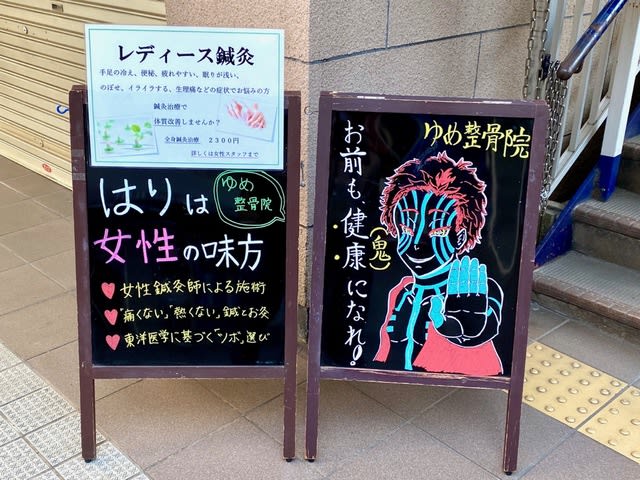 レディース鍼灸
手足の冷え、便秘、疲れやすい、眠りが浅い、
のぼせ、イライラする、生理痛などの症状でお悩みの方
鍼灸治療で
体質改善しませんか？
全身鍼灸治療 2300円
詳しくは女性スタッフまで
はりは
ゆめ
整骨院
女性の味方
女性鍼灸師による施術
"痛くない""熱くない"鍼とお灸
東洋医学に基づく「ツボ」選び
ゆめ整骨院
お前も健康(鬼)になれ!